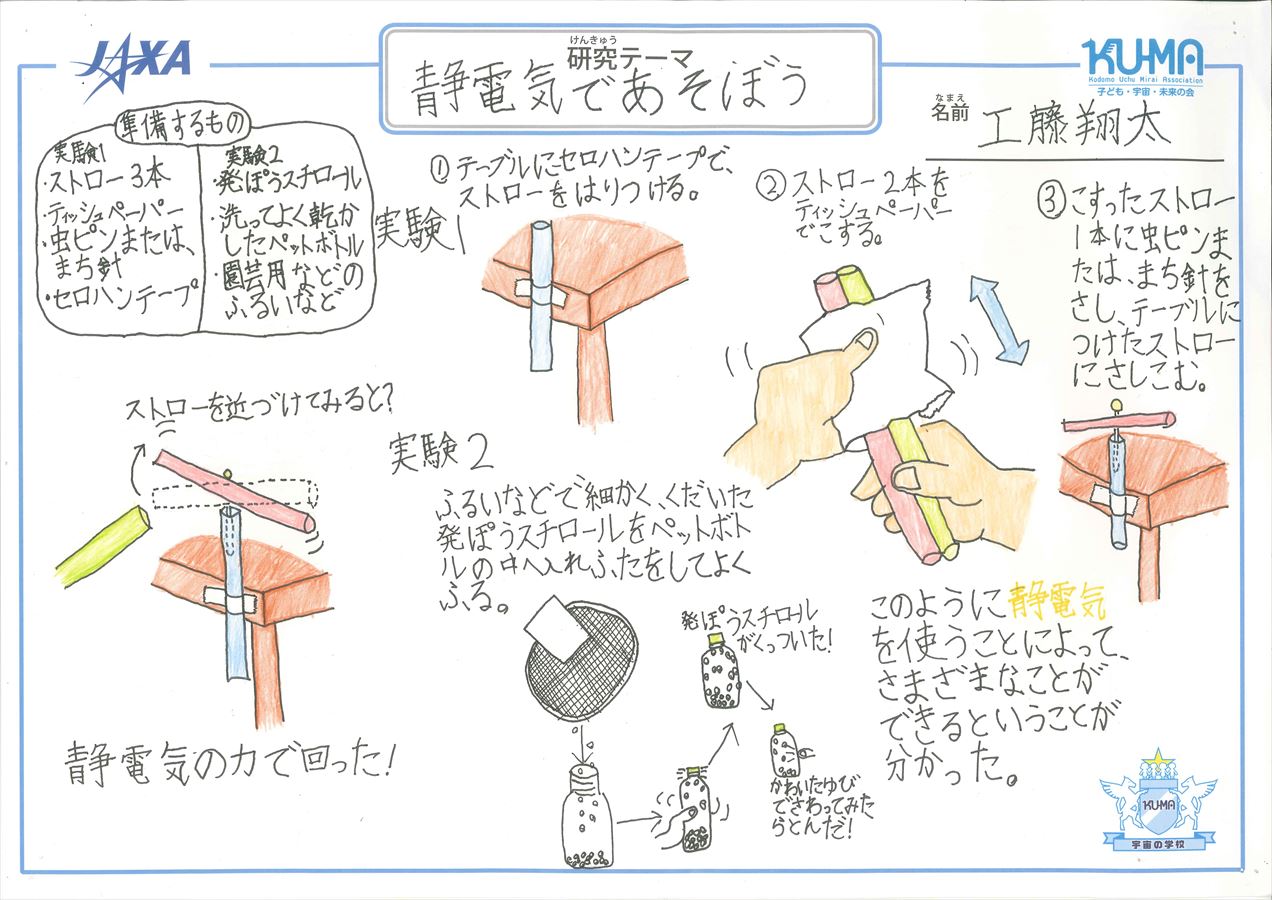 JAXA
けんきゅう
研究テーマ
静電気であそぼう
KU-MA
Kodomo Uchu Mirai Association
子ども・宇宙・未来の会
なまえ
名前
工藤翔太
準備するもの
実験1
・ストロー3本
・ティッシュペーパー
・虫ピンまたは、
まち針
・セロハンテープ
実験2
・発ぽうスチロール
・洗ってよく乾か
したペットボトル
・園芸用などの
ふるいなど
実験1
①テーブルにセロハンテープで、
ストローをはりつける。
②ストロー2本を
ティッシュペーパー
でこする。
③こすったストロー
1本に虫ピンま
たは、まち針を
さし、テーブルに
つけたストロー
にさしこむ。
ストローを近づけてみると?
静電気の力で回った!
実験2
ふるいなどで細かく、くだいた
発ぽうスチロールをペットボト
ルの中へ入れふたをしてよく
ふる。
発ぽうスチロール
がくっついた!
かわいたゆび
でさわってみた
らとんだ!
このように静電気
を使うことによって、
さまざまなことが
できるということが
分かった。
KU-MA
宇宙の学校